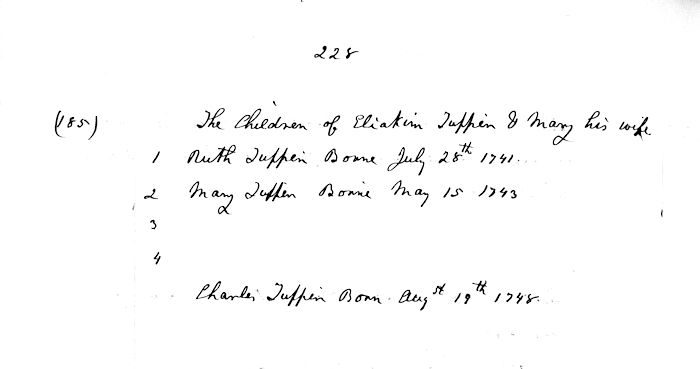 228
(185) The Children of Eliakim Tuppin & Mary his wife
1 Ruth Tuppin Borne July 28th 1741.
2 Mary Tuppin Borne May 15 1743
3
4
Charles Tuppin Born Augst 19th 1748.